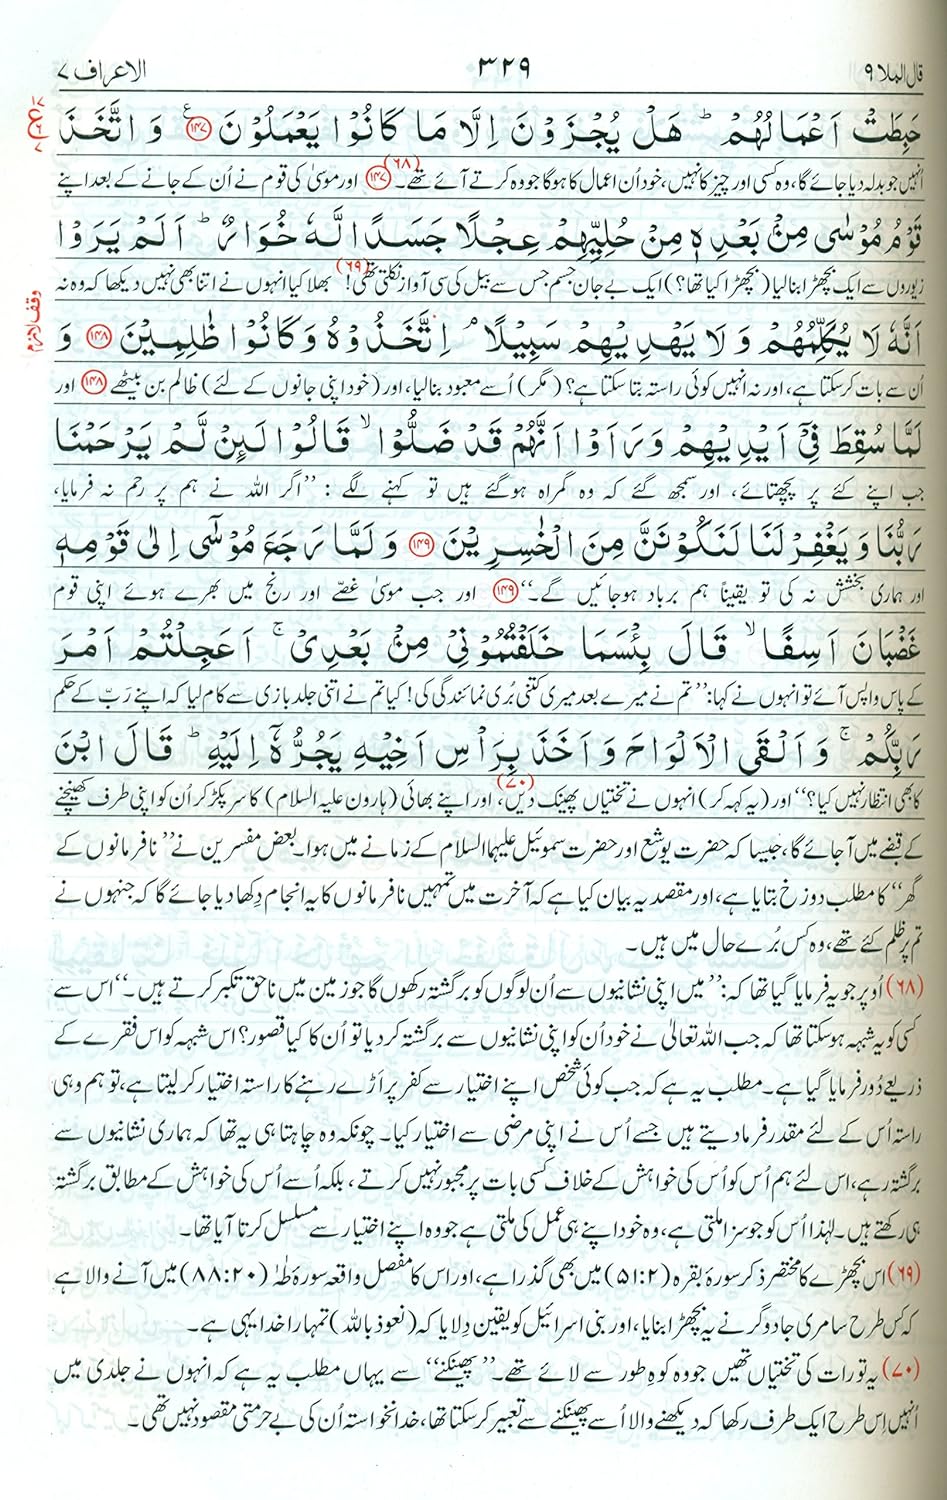 قال الملا ۹ ۳۲۹ الاعراف ۷
حَبِطَتْ اَعْمَالُهُمْ ؕ هَلْ يُجْزَوْنَ اِلَّا مَا كَانُوْا يَعْمَلُوْنَ ﴿۱۴۷﴾ ع وَ اتَّخَذَ
اُنہیں جو بدلہ دیا جائے گا، وہ کسی اور چیز کا نہیں، خود اُن اعمال کا ہوگا جو وہ کرتے آئے تھے۔(۶۸) ﴿۱۴۷﴾ اور موسیٰ کی قوم نے اُن کے جانے کے بعد اپنے
قَوْمُ مُوْسٰى مِنْۢ بَعْدِهٖ مِنْ حُلِيِّهِمْ عِجْلًا جَسَدًا لَّهٗ خُوَارٌ ؕ اَلَمْ يَرَوْا
زیوروں سے ایک بچھڑا بنا لیا (بچھڑا کیا تھا؟) ایک بے جان جسم جس سے بیل کی سی آواز نکلتی تھی!(۶۹) بھلا کیا انہوں نے اتنا بھی نہیں دیکھا کہ وہ نہ
اَنَّهٗ لَا يُكَلِّمُهُمْ وَ لَا يَهْدِيْهِمْ سَبِيْلًا ۘ اِتَّخَذُوْهُ وَ كَانُوْا ظٰلِمِيْنَ ﴿۱۴۸﴾ وَ
وقف لازم
اُن سے بات کر سکتا ہے، اور نہ انہیں کوئی راستہ بتا سکتا ہے؟ (مگر) اُسے معبود بنا لیا، اور (خود اپنی جانوں کے لئے) ظالم بن بیٹھے ﴿۱۴۸﴾ اور
لَمَّا سُقِطَ فِيْۤ اَيْدِيْهِمْ وَ رَاَوْا اَنَّهُمْ قَدْ ضَلُّوْا ۙ قَالُوْا لَئِنْ لَّمْ يَرْحَمْنَا
جب اپنے کئے پر پچھتائے، اور سمجھ گئے کہ وہ گمراہ ہوگئے ہیں تو کہنے لگے : ’’اگر اللہ نے ہم پر رحم نہ فرمایا،
رَبُّنَا وَ يَغْفِرْ لَنَا لَنَكُوْنَنَّ مِنَ الْخٰسِرِيْنَ ﴿۱۴۹﴾ وَ لَمَّا رَجَعَ مُوْسٰۤى اِلٰى قَوْمِهٖ
اور ہماری بخشش نہ کی تو یقیناً ہم برباد ہوجائیں گے۔‘‘ ﴿۱۴۹﴾ اور جب موسیٰ غصّے اور رنج میں بھرے ہوئے اپنی قوم
غَضْبَانَ اَسِفًا ۙ قَالَ بِئْسَمَا خَلَفْتُمُوْنِيْ مِنْۢ بَعْدِيْ ۚ اَعَجِلْتُمْ اَمْرَ
کے پاس واپس آئے تو انہوں نے کہا: ’’تم نے میرے بعد میری کتنی بُری نمائندگی کی! کیا تم نے اتنی جلد بازی سے کام لیا کہ اپنے رَبّ کے حکم
رَبِّكُمْ ۚ وَ اَلْقَى الْاَلْوَاحَ وَ اَخَذَ بِرَاْسِ اَخِيْهِ يَجُرُّهٗۤ اِلَيْهِ ؕ قَالَ ابْنَ
کا بھی انتظار نہیں کیا؟‘‘ اور (یہ کہہ کر) انہوں نے تختیاں پھینک دیں،(۷۰) اور اپنے بھائی (ہارون علیہ السلام) کا سر پکڑ کر اُن کو اپنی طرف کھینچنے
کے قبضے میں آجائے گا، جیسا کہ حضرت یوشع اور حضرت سموئیل علیہما السلام کے زمانے میں ہوا۔ بعض مفسرین نے ’’نافرمانوں کے
گھر‘‘ کا مطلب دوزخ بتایا ہے، اور مقصد یہ بیان کیا ہے کہ آخرت میں تمہیں نافرمانوں کا یہ انجام دِکھا دیا جائے گا کہ جنہوں نے
تم پر ظلم کئے تھے، وہ کس بُرے حال میں ہیں۔
(۶۸) اُوپر جو یہ فرمایا گیا تھا کہ: ’’میں اپنی نشانیوں سے اُن لوگوں کو برگشتہ رکھوں گا جو زمین میں ناحق تکبر کرتے ہیں۔‘‘ اس سے
کسی کو یہ شبہ ہوسکتا تھا کہ جب اللہ تعالیٰ نے خود اُن کو اپنی نشانیوں سے برگشتہ کر دیا تو اُن کا کیا قصور؟ اس شبہ کو اس فقرے کے
ذریعے دُور فرمایا گیا ہے۔ مطلب یہ ہے کہ جب کوئی شخص اپنے اختیار سے کفر پر اَڑے رہنے کا راستہ اختیار کر لیتا ہے، تو ہم وہی
راستہ اُس کے لئے مقدر فرما دیتے ہیں جسے اُس نے اپنی مرضی سے اختیار کیا۔ چونکہ وہ چاہتا ہی یہ تھا کہ ہماری نشانیوں سے
برگشتہ رہے، اس لئے ہم اُس کو اُس کی خواہش کے خلاف کسی بات پر مجبور نہیں کرتے، بلکہ اُسے اُس کی خواہش کے مطابق برگشتہ
ہی رکھتے ہیں۔ لہٰذا اُس کو جو سزا ملتی ہے، وہ خود اپنے ہی عمل کی ملتی ہے جو وہ اپنے اختیار سے مسلسل کرتا آیا تھا۔
(۶۹) اس بچھڑے کا مختصر ذکر سورۂ بقرہ (۵۱:۲) میں بھی گذرا ہے، اور اس کا مفصل واقعہ سورۂ طٰہٰ (۸۸:۲۰) میں آنے والا ہے
کہ کس طرح سامری جادوگر نے یہ بچھڑا بنایا، اور بنی اسرائیل کو یقین دِلایا کہ (نعوذ باللہ) تمہارا خدا یہی ہے۔
(۷۰) یہ تورات کی تختیاں تھیں جو وہ کوہِ طور سے لائے تھے۔ ’’پھینکنے‘‘ سے یہاں مطلب یہ ہے کہ انہوں نے جلدی میں
اُنہیں اِس طرح ایک طرف رکھا کہ دیکھنے والا اُسے پھینکنے سے تعبیر کرسکتا تھا، خدانخواستہ اُن کی بے حرمتی مقصود نہیں تھی۔